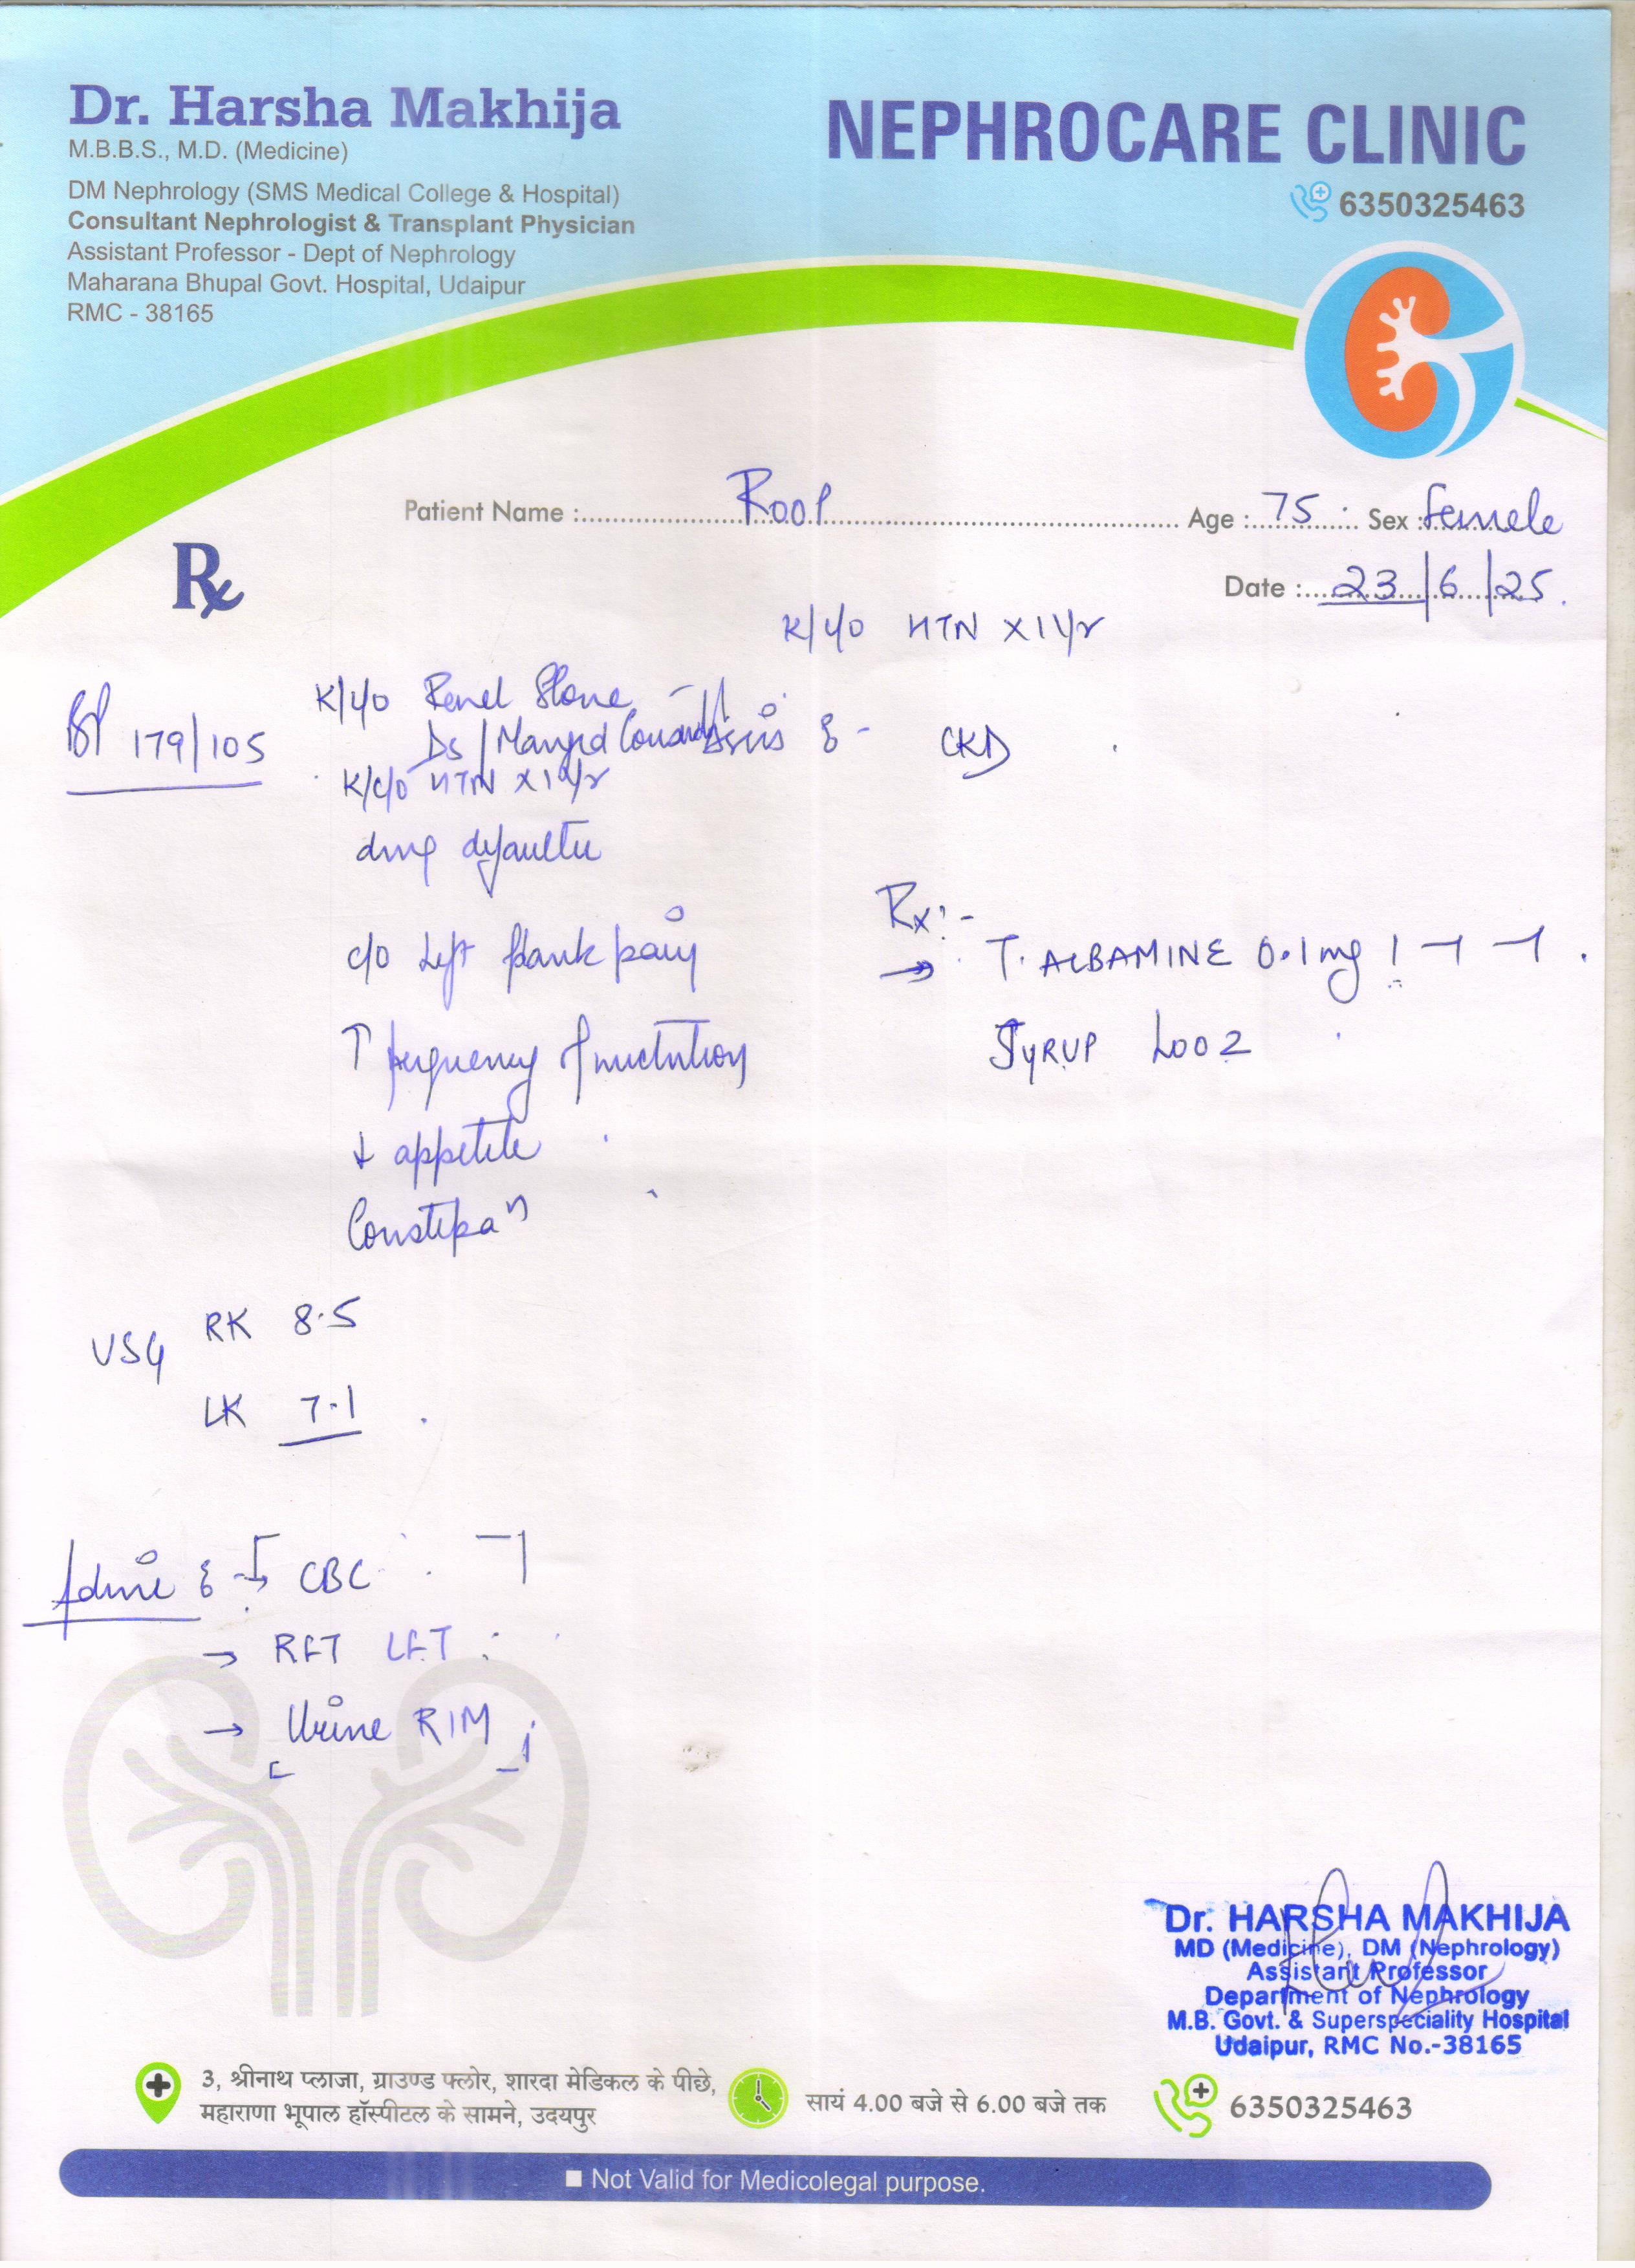 Dr. Harsha Makhija
M.B.B.S., M.D. (Medicine)
DM Nephrology (SMS Medical College & Hospital)
Consultant Nephrologist & Transplant Physician
Assistant Professor - Dept of Nephrology
Maharana Bhupal Govt. Hospital, Udaipur
RMC - 38165
NEPHROCARE CLINIC
6350325463
Patient Name : Roop Age : 75 Sex : female
Date : 23/6/25
Rx
K/c/o HTN x 1 yr
BP 179/105
K/c/o Renal Stone
Ds / Managed
CKD
K/c/o HTN x 1 yr
drug defaulter
c/o Left flank pain
↑ frequency of micturition
↓ appetite
Constipaⁿ
Rx :-
→ T. ALBAMINE 0.1mg
SYRUP LOOZ
USG RK 8.5
LK 7.1
Advice → CBC
→ RFT LFT
→ Urine R/M
Dr. HARSHA MAKHIJA
MD (Medicine), DM (Nephrology)
Assistant Professor
Department of Nephrology
M.B. Govt. & Superspeciality Hospital
Udaipur, RMC No.-38165
3, श्रीनाथ प्लाजा, ग्राउण्ड फ्लोर, शारदा मेडिकल के पीछे,
महाराणा भूपाल हॉस्पीटल के सामने, उदयपुर
सायं 4.00 बजे से 6.00 बजे तक
6350325463
Not Valid for Medicolegal purpose.